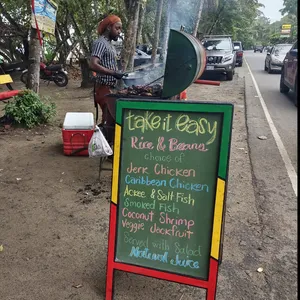 take it easy
Rice & Beans
choice of
Jerk Chicken
Caribbean Chicken
Ackee & Salt Fish
Smoked Fish
Coconut Shrimp
Veggie Jackfruit
Served with Salad
Natural Juice